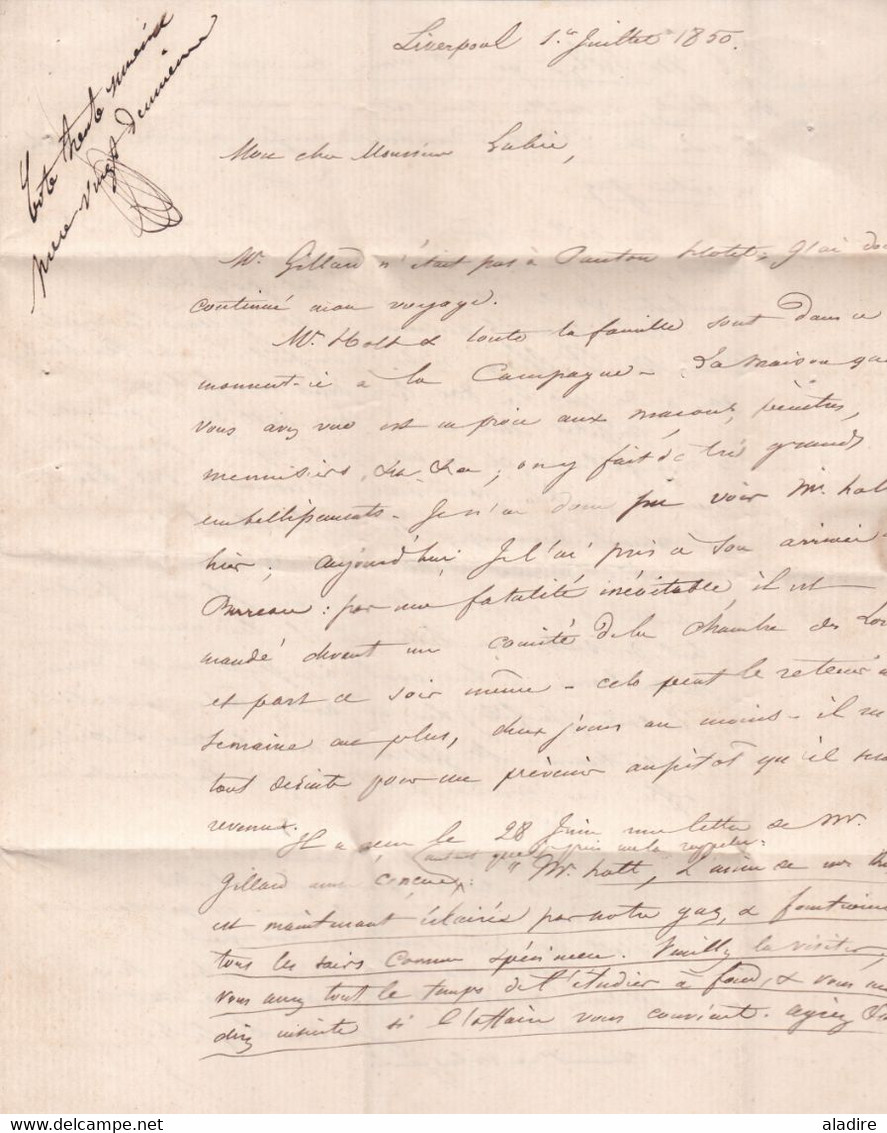 Liverpool 1er Juillet 1850.
Cote trente
pièce vingt deuxième
Mon cher Monsieur Lubie,
Mr. Gillard n'était pas à Panton Hotel, J'ai donc
continué mon voyage.
Mr. Holt & toute la famille sont dans ce
moment-ci à la Campagne - La maison que
vous avez vue est en proie aux maçons, peintres,
menuisiers, &a, &a; on y fait de très grands
embellissements - Je n'ai donc pu voir Mr. holt
hier; aujourd'hui Je l'ai pris à son arrivée
Bureau: par une fatalité inévitable il est
mandé devant un comité de la Chambre des Lor
et part ce soir même - cela peut le retenir u
semaine au plus, deux jours au moins - il m
tout de suite pour me prévenir aussitôt qu'il sera
revenu.
Il a reçu le 28 Juin une lettre de Mr.
autant que je puis me la rappeler.
Gillard ainsi conçue: "Mr. holt, L'usine de
est maintenant éclairée par notre gaz, & fonctionne
tous les soirs comme spécimen. Veuillez la visiter,
vous aurez tout le temps de l'étudier à fond, & vous me
direz ensuite si l'affaire vous convient. agréez
delcampe.net
aladire